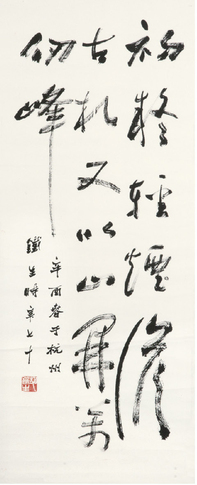 初疑輕煙澹
古松又似山開萬
仞峰
辛酉春于杭州
鐵生時年七十